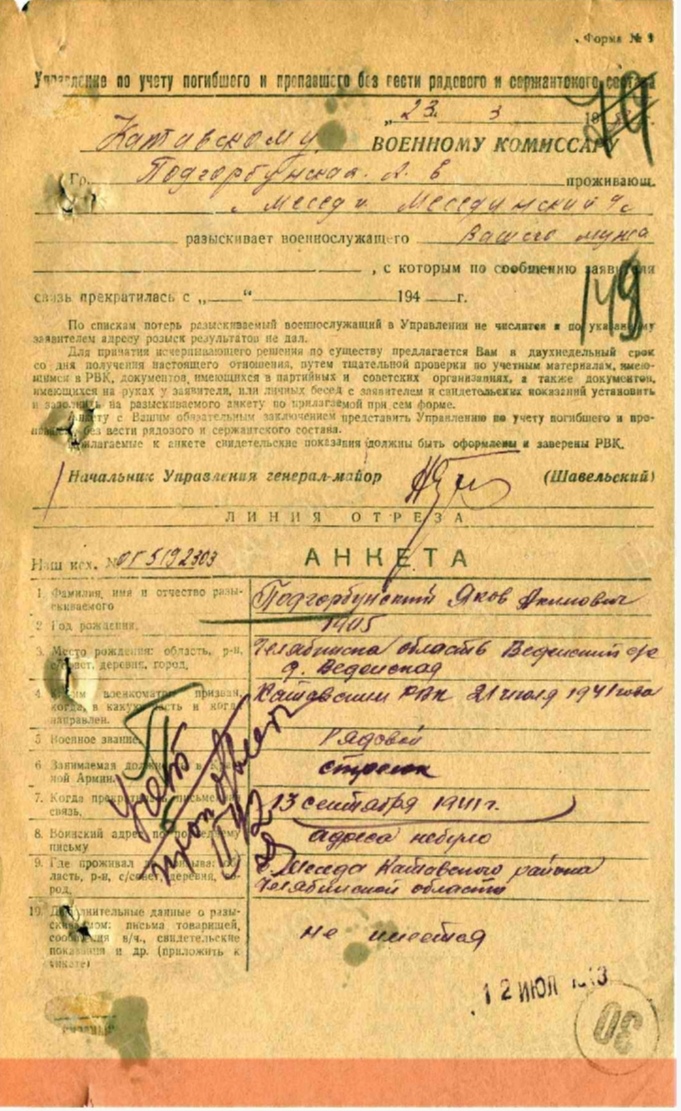 Форма № 9
Управление по учету погибшего и пропавшего без вести рядового и сержантского состава
„ 23. 3 19
Катавскому ВОЕННОМУ КОМИССАРУ
79
Гр. Подгорбунская А. В проживающ.
Меседи Меседински с/с
разыскивает военнослужащего Вашего мужа
, с которым по сообщению заявителя
149
связь прекратилась с „ “ 194 г.
По спискам потерь разыскиваемый военнослужащий в Управлении не числится и по указанному
заявителем адресу розыск результатов не дал.
Для принятия исчерпывающего решения по существу предлагается Вам в двухнедельный срок
со дня получения настоящего отношения, путем тщательной проверки по учетным материалам, имею-
щимся в РВК, документов, имеющихся в партийных и советских организациях, а также документов,
имеющихся на руках у заявителя, или личных бесед с заявителем и свидетельских показаний установить
и заполнить на разыскиваемого анкету по прилагаемой при сем форме.
Анкету с Вашим обязательным заключением представить Управлению по учету погибшего и про-
павшего без вести рядового и сержантского состава.
Прилагаемые к анкете свидетельские показания должны быть оформлены и заверены РВК.
Начальник Управления генерал-майор (Шавельский)
ЛИНИЯ ОТРЕЗА
Наш исх. № 0Г5192303 АНКЕТА
1 Фамилия, имя и отчество разы-
скиваемого
Подгорбунский Яков Акимович
2 Год рождения, 1905
3. Место рождения: область, р-н,
с/совет, деревня, город,
Челябинска область Веденский с/с
д. Веденская
4. Каким военкоматом призван,
когда, в какую часть и когда
направлен.
Катавским РВК 21 июля 1941 года
5 Военное звание, Рядовой
6 Занимаемая должность в Крас-
ной Армии,
стрелок
7. Когда прекратилась письменная
связь,
13 сентября 1941 г.
8. Воинский адрес по последнему
письму
адреса небыло
9. Где проживал до призыва: об-
ласть, р-н, с/совет, деревня, го-
род,
с. Меседа Катавского района
Челябинской области
10. Дополнительные данные о разы-
скиваемом: письма товарищей,
сообщения в/ч., свидетельские
показания и др. (приложить к
анкете)
не имеется
Учет
12 ИЮЛ
30